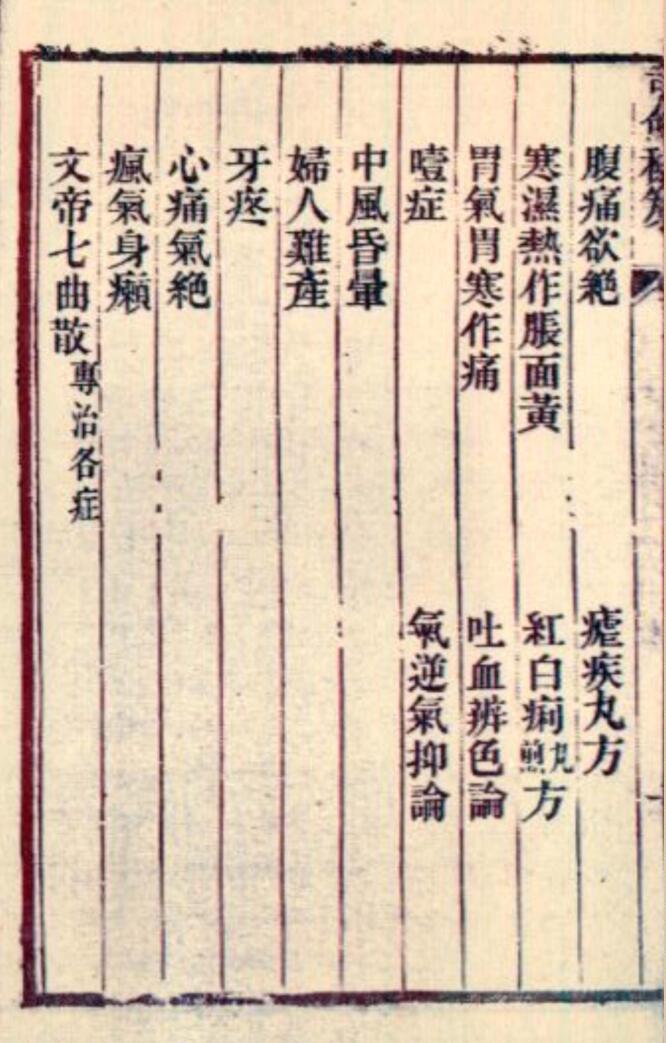 腹痛欲絕　瘧疾丸方
寒濕熱作脹面黃　紅白痢丸煎方
胃氣胃寒作痛　吐血辨色論
噎症　氣逆氣抑論
中風昏暈
婦人難產
牙疼
心痛氣絕
瘋氣身癩
文帝七曲散專治各症